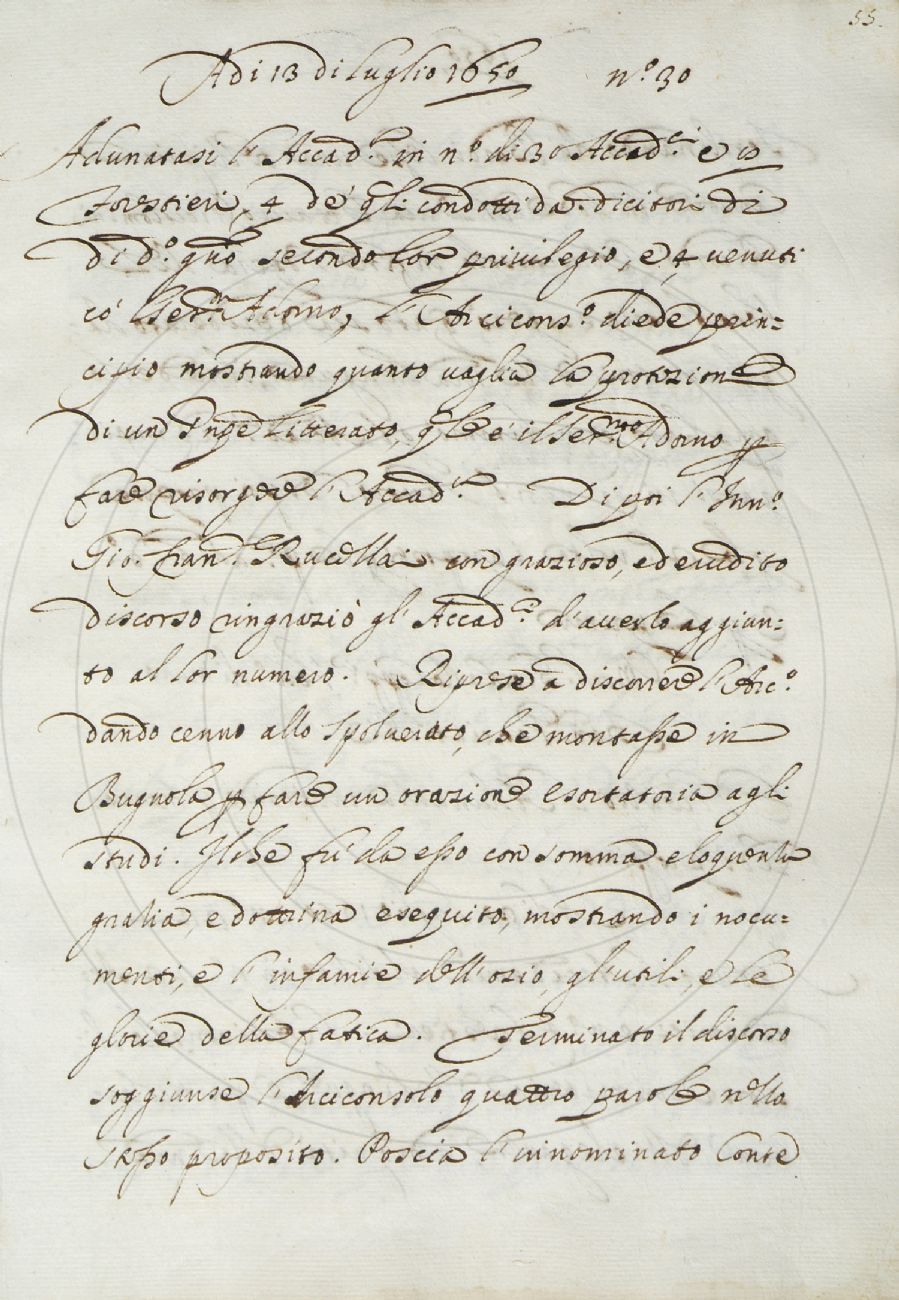 55.
Adi 13 di luglio 1650 n.º 30
Adunatasi l'Accad.ª in n.º di 30 Accad.ci e 10
forestieri, 4 de' q.li condotti da dicitori di
di d.º gno secondo lor privilegio, e 4 venuti
co' l ser.mo Adorno, l'Arcicons.º diede prin=
cipio mostrando quanto vaglia la protezione
di un Pnpe Litterato, q.le è il Ser.mo Adorno p
fare risorgere l'Accad.ª Di poi l'Inn.º
Gio: Fran.co Rucellai con grazioso, ed erudito
discorso ringraziò gl'Accad.ci d'averlo aggiun=
to al lor numero. Riprese a discorrere l'Arc.º
dando cenno allo Spolverato, che montasse in
Bugnola p fare un orazione esortatoria agli
studi. Il che fù da esso con somma eloquentia
gratia, e dottrina eseguito, mostrando i nocu=
menti, e l'infamie dell'ozio, gl'utili, e le
glorie della fatica. Terminato il discorso
soggiunse l'Arciconsolo quattro parole nello
stesso proposito. Poscia l'innominato Conte